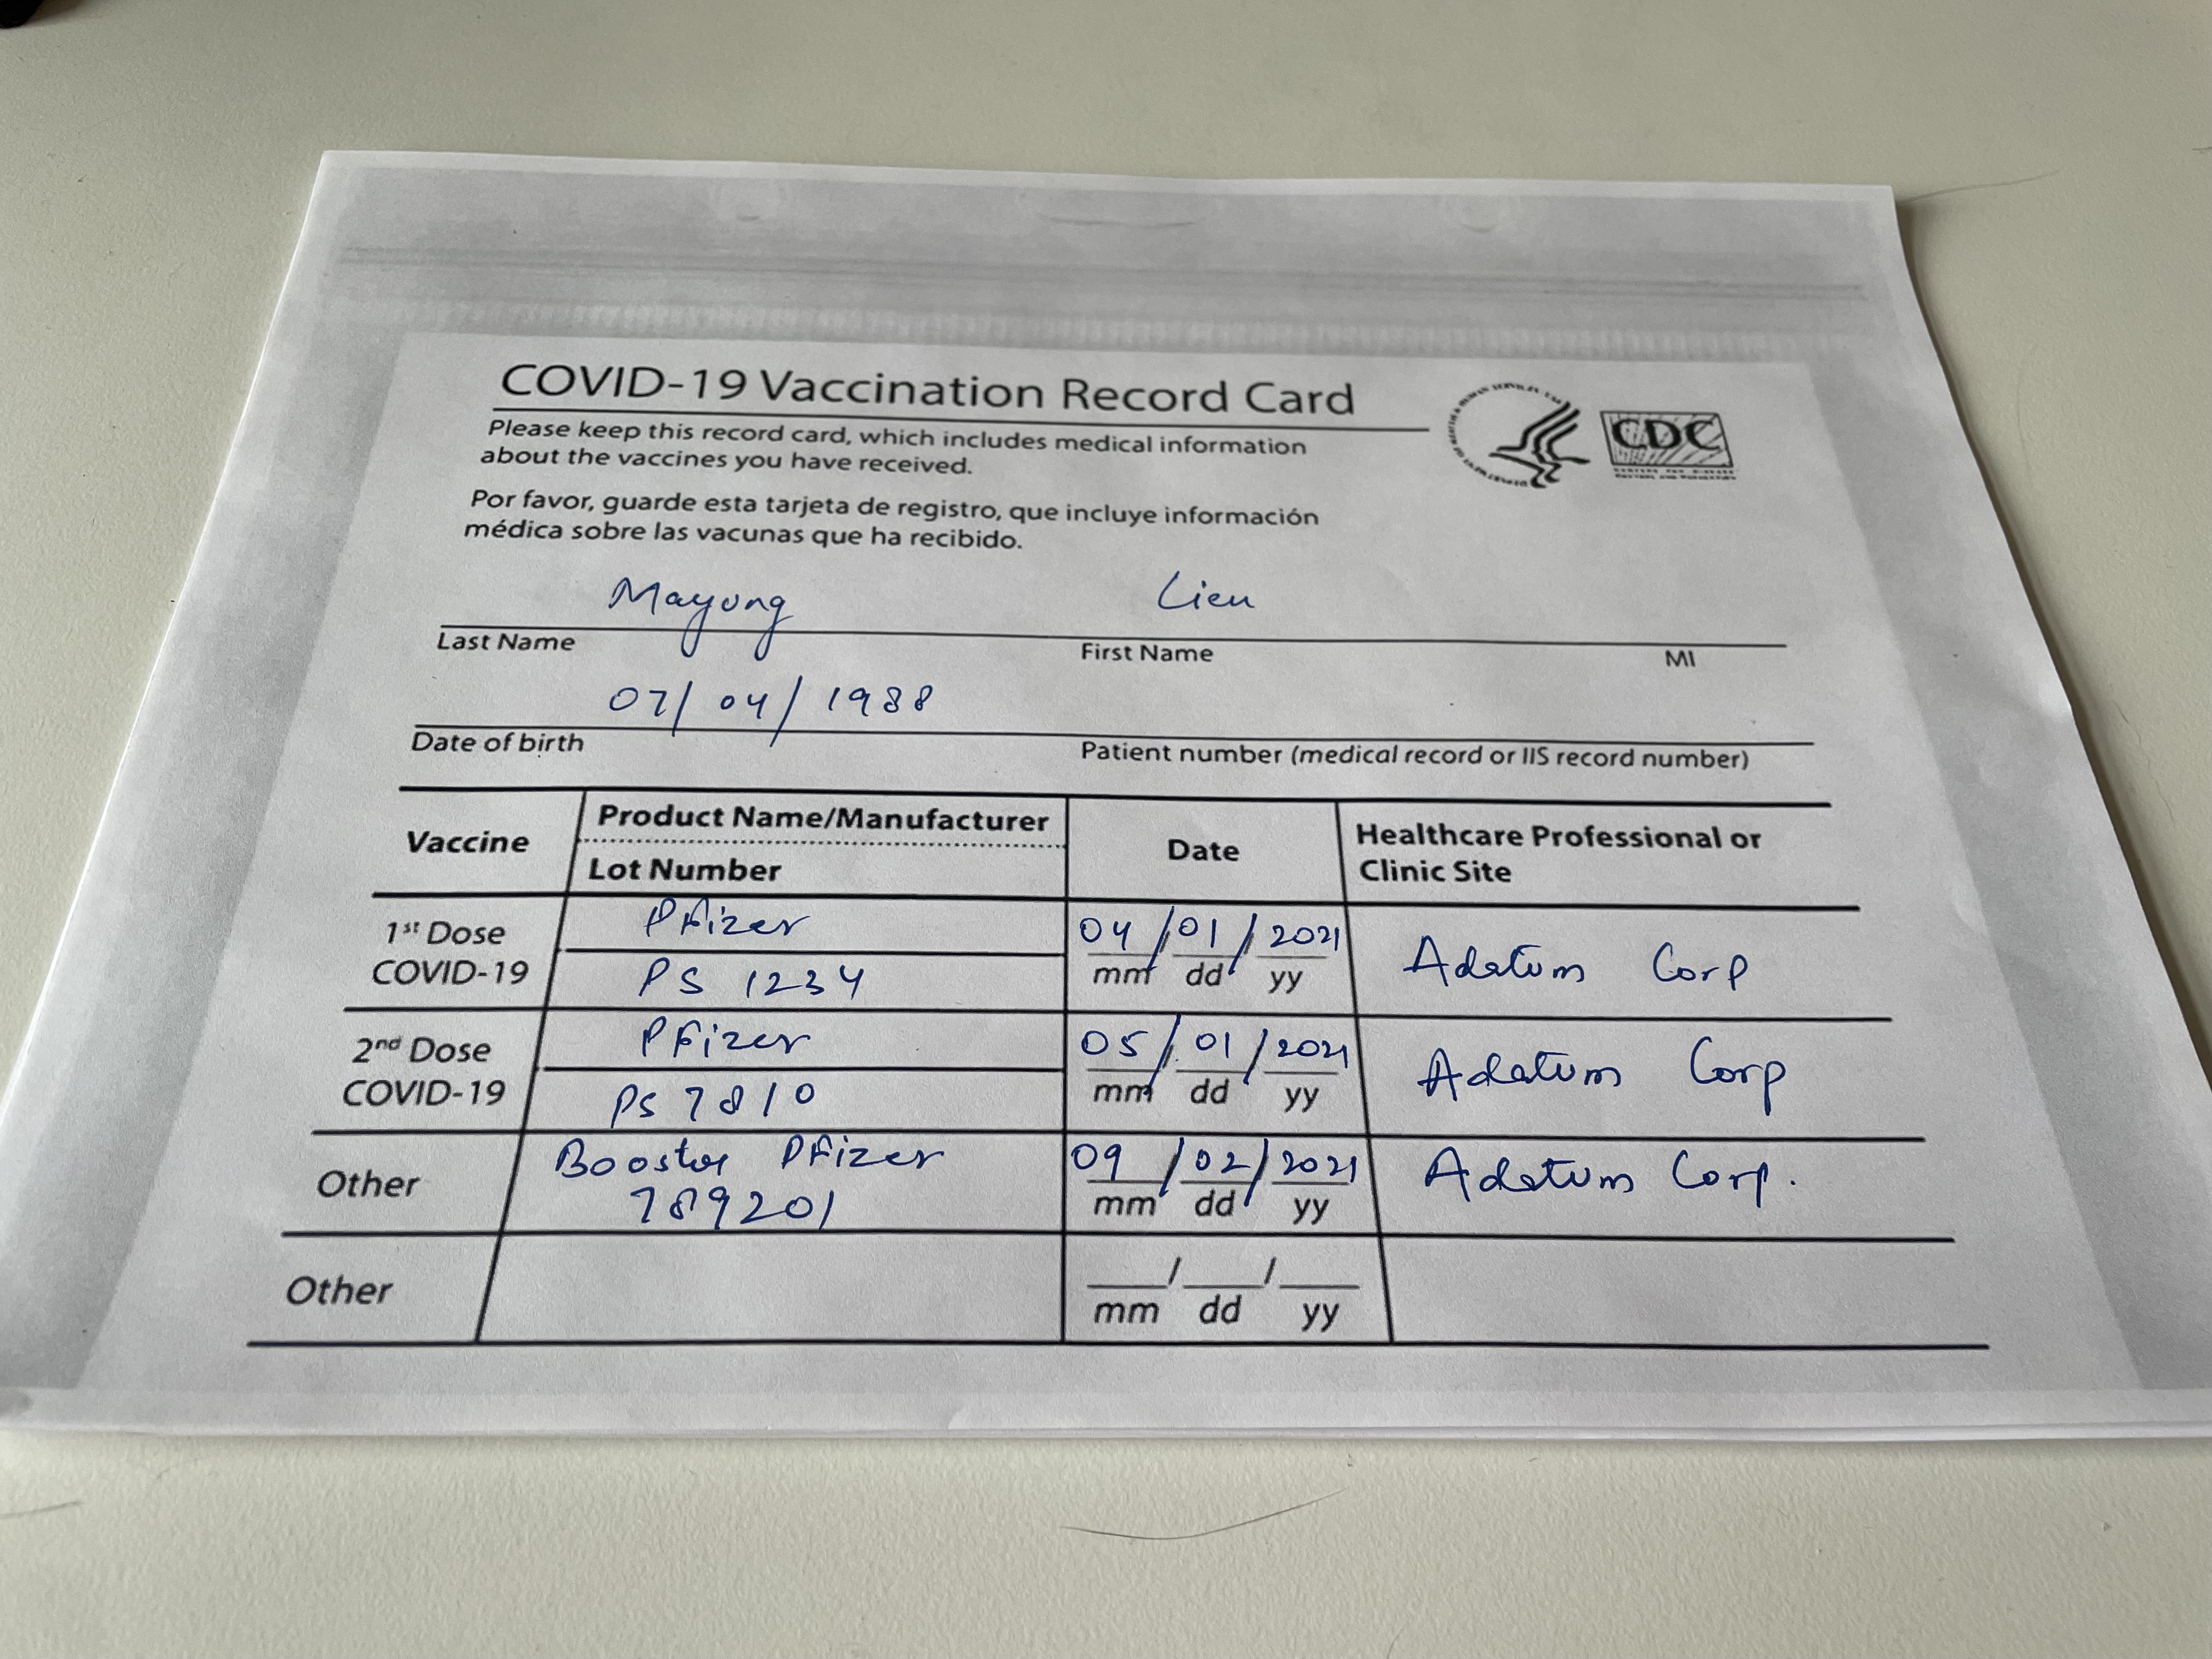 COVID-19 Vaccination Record Card
Please keep this record card, which includes medical information
about the vaccines you have received.
Por favor, guarde esta tarjeta de registro, que incluye información
médica sobre las vacunas que ha recibido.
CDC
Mayung Lieu
Last Name First Name MI
07/04/1988
Date of birth Patient number (medical record or IIS record number)
Vaccine Product Name/Manufacturer Date Healthcare Professional or
Lot Number Clinic Site
1st Dose COVID-19 Pfizer 04/01/2021 Adatum Corp
PS 1234 mm dd yy
2nd Dose COVID-19 Pfizer 05/01/2021 Adatum Corp
PS 7810 mm dd yy
Other Booster Pfizer 09/02/2021 Adatum Corp.
789201 mm dd yy
Other __/__/__
mm dd yy